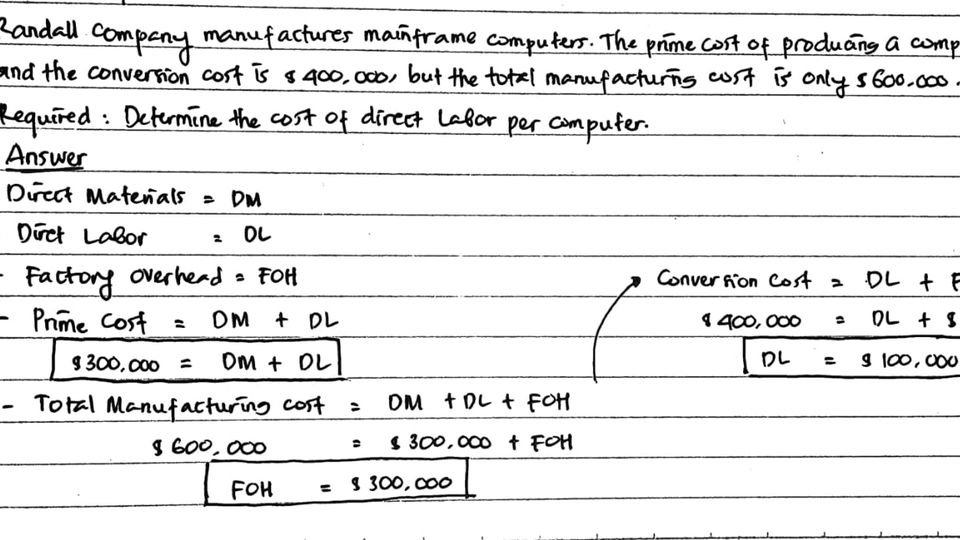 Randall Company manufactures mainframe computers. The prime cost of producing a comp
and the conversion cost is $400,000, but the total manufacturing cost is only $600,000.
Required: Determine the cost of direct Labor per computer.
Answer
Direct Materials = DM
Diret Labor = DL
- Factory overhead = FOH
- Prime Cost = DM + DL
$300,000 = DM + DL
- Total Manufacturing cost = DM + DL + FOH
$600,000 = $300,000 + FOH
FOH = $300,000
Conversion Cost = DL + F
$400,000 = DL + $
DL = $100,000